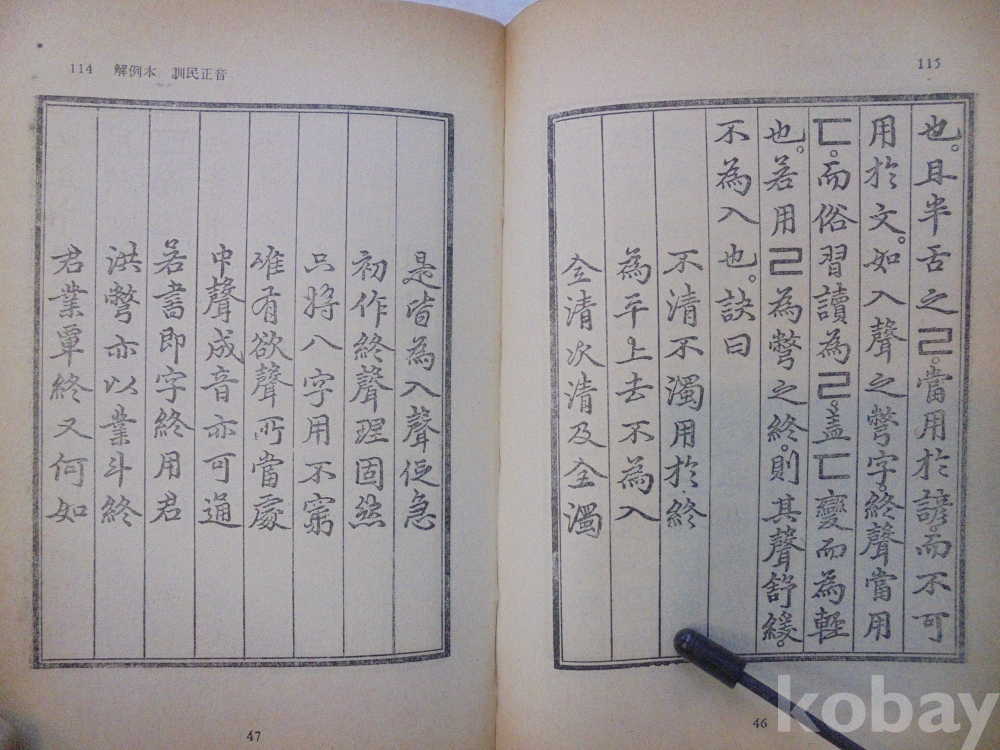 115
也。且半舌之ㄹ。當用於諺。而不可
用於文。如入聲之彆字。終聲當用
ㄷ。而俗習讀為ㄹ。盖ㄷ變而為輕
也。若用ㄹ為彆之終。則其聲舒緩。
不為入也。訣曰
不清不濁用於終
為平上去不為入
全清次清及全濁
46
114 解例本 訓民正音
是皆為入聲促急
初作終聲理固然
只將八字用不窮
唯有欲聲所當處
中聲成音亦可通
若書即字終用君
洪彆亦以業斗終
君業覃終又何如
47
kobay